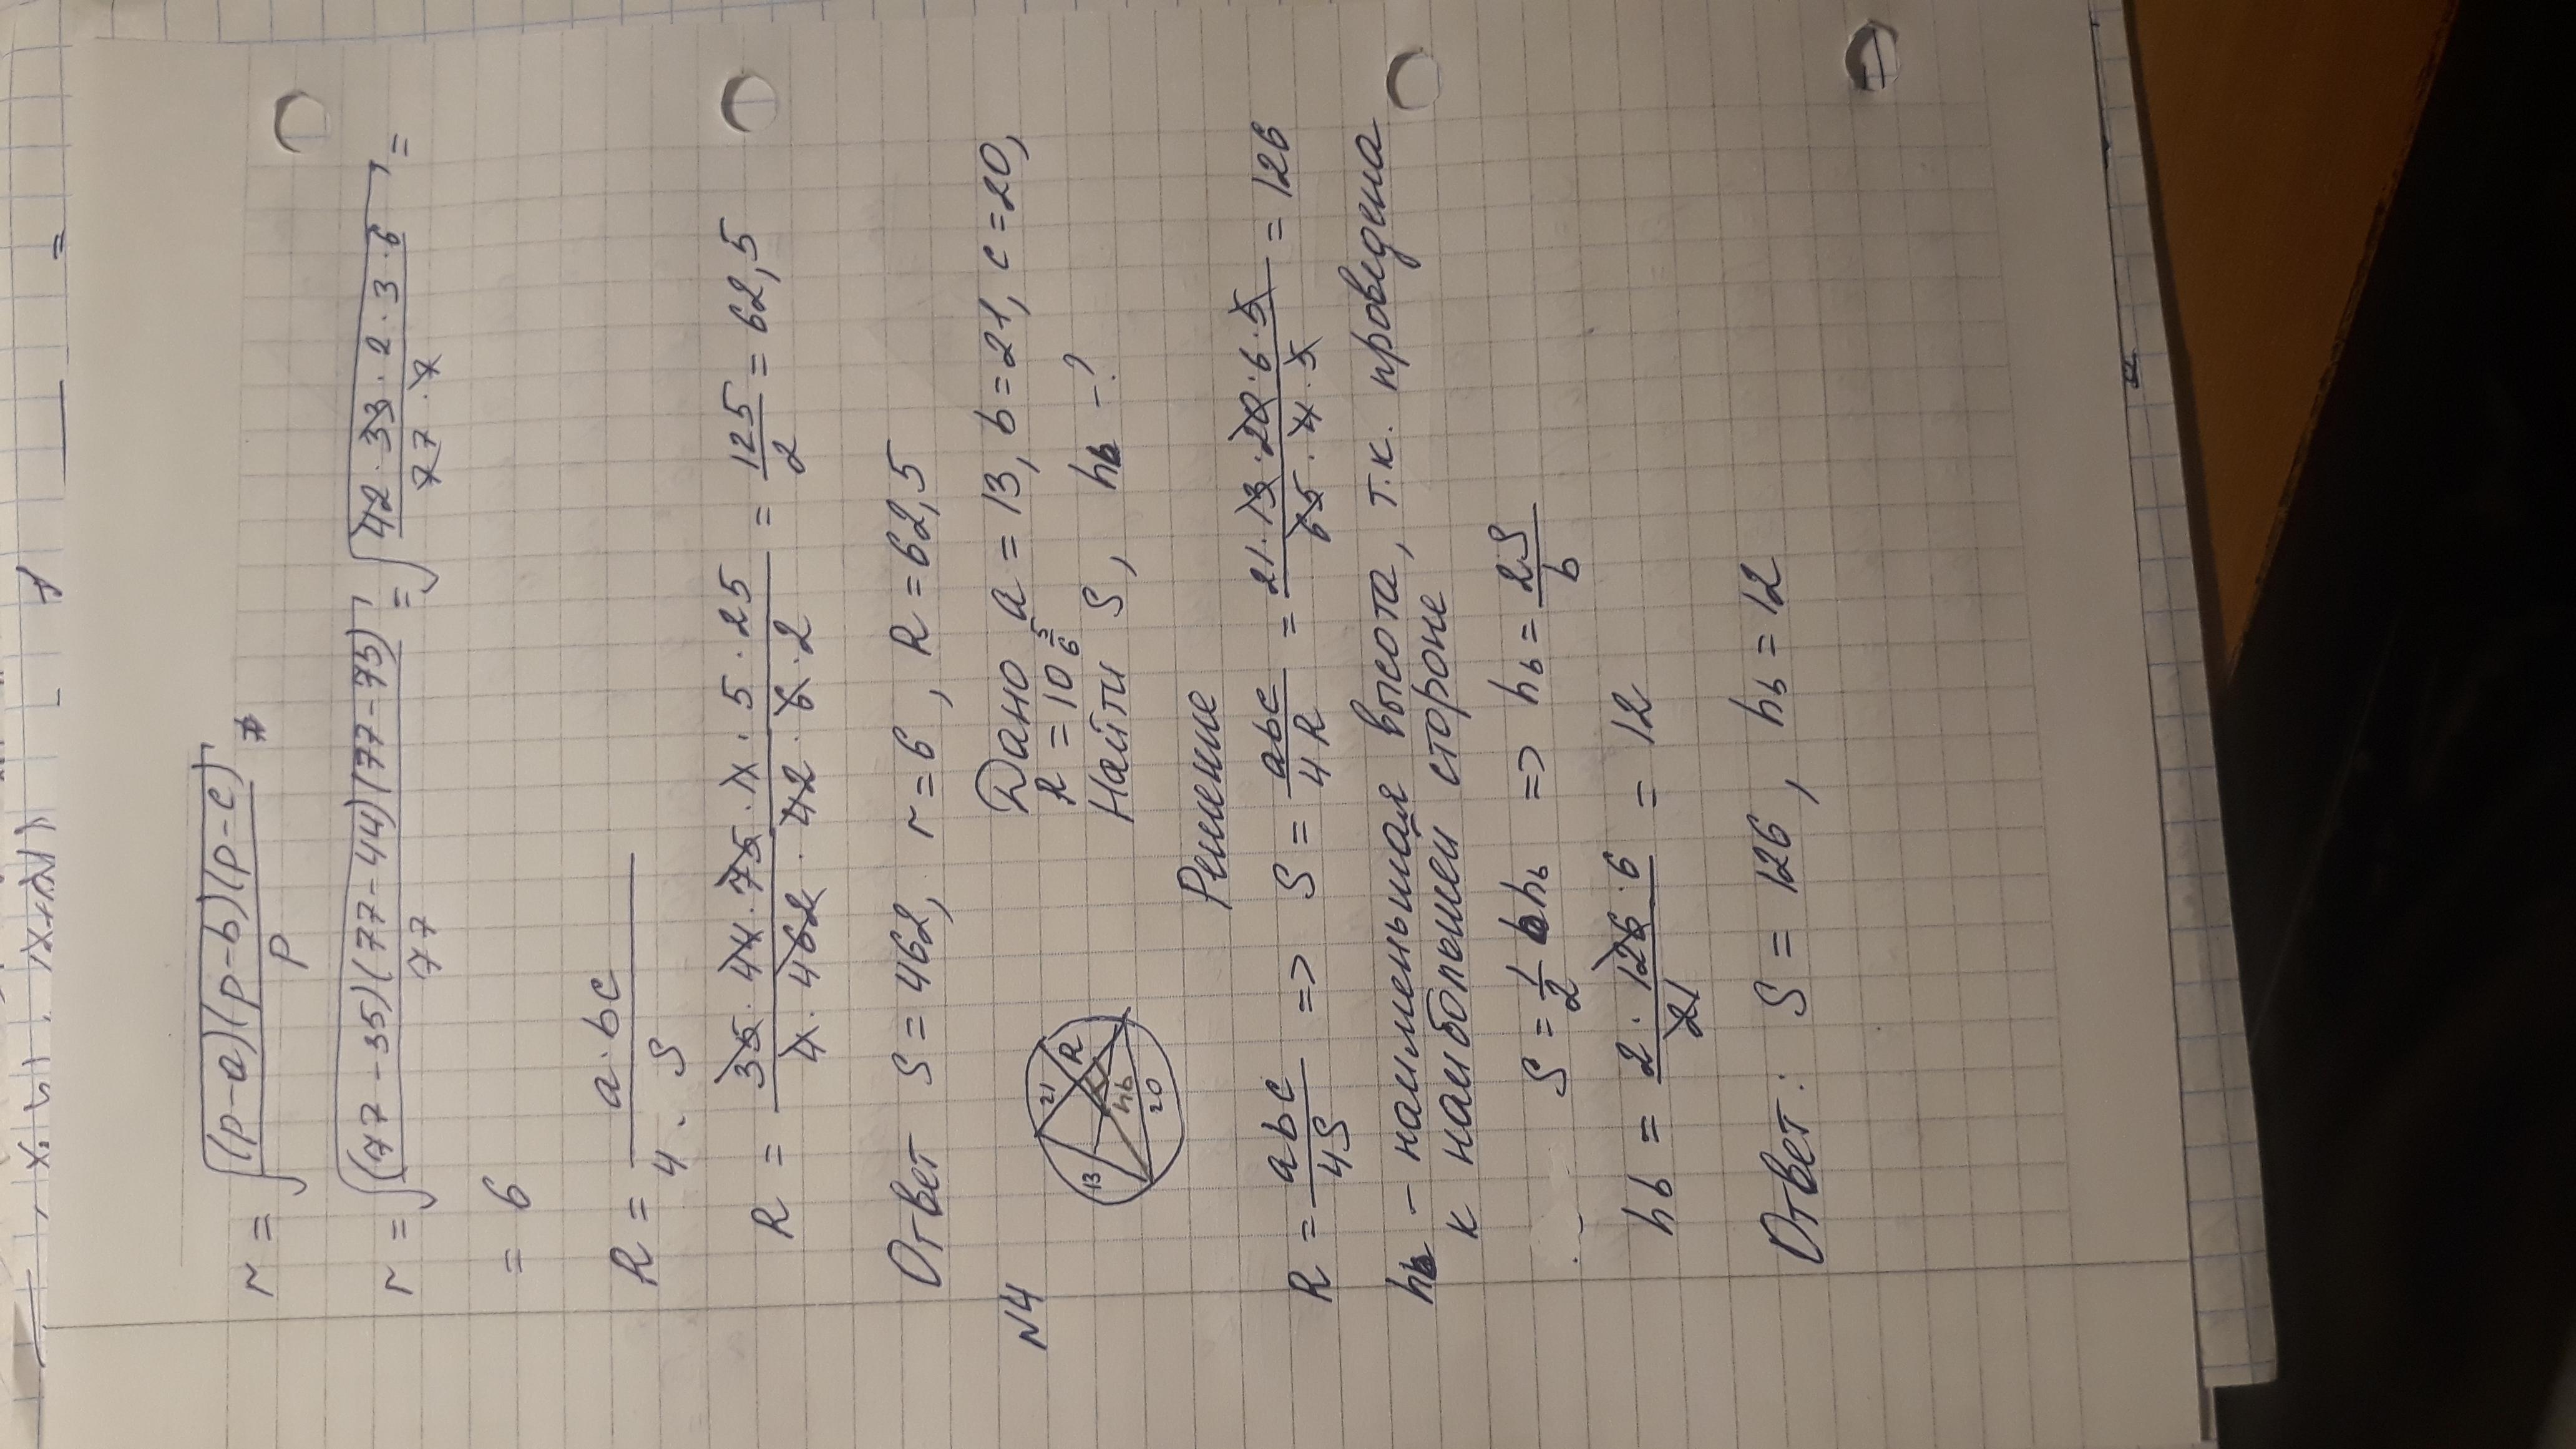 r = √((p-a)(p-b)(p-c) / p)
r = √((77-35)(77-44)(77-75) / 77) = √(42·33·2·3·6 / 77·7) =
= 6
R = a·bc / 4·S
R = 35·44·75·11·5·25 / 4·462·42·6·2 = 125/2 = 62,5
Ответ S = 462, r = 6, R = 62,5
N4
Дано a = 13, b = 21, c = 20,
R = 10 5/6
Найти S, hb - ?
21
R
13
hb
20
Решение
R = abc/4S => S = abc/4R = 21·13·20·6·5 / 65·4·5 = 126
hb - наименьшая высота, т.к. проведена
к наибольшей стороне
S = 1/2 bhb => hb = 2S/b
hb = 2·126·6 / 21 = 12
Ответ: S = 126, hb = 12